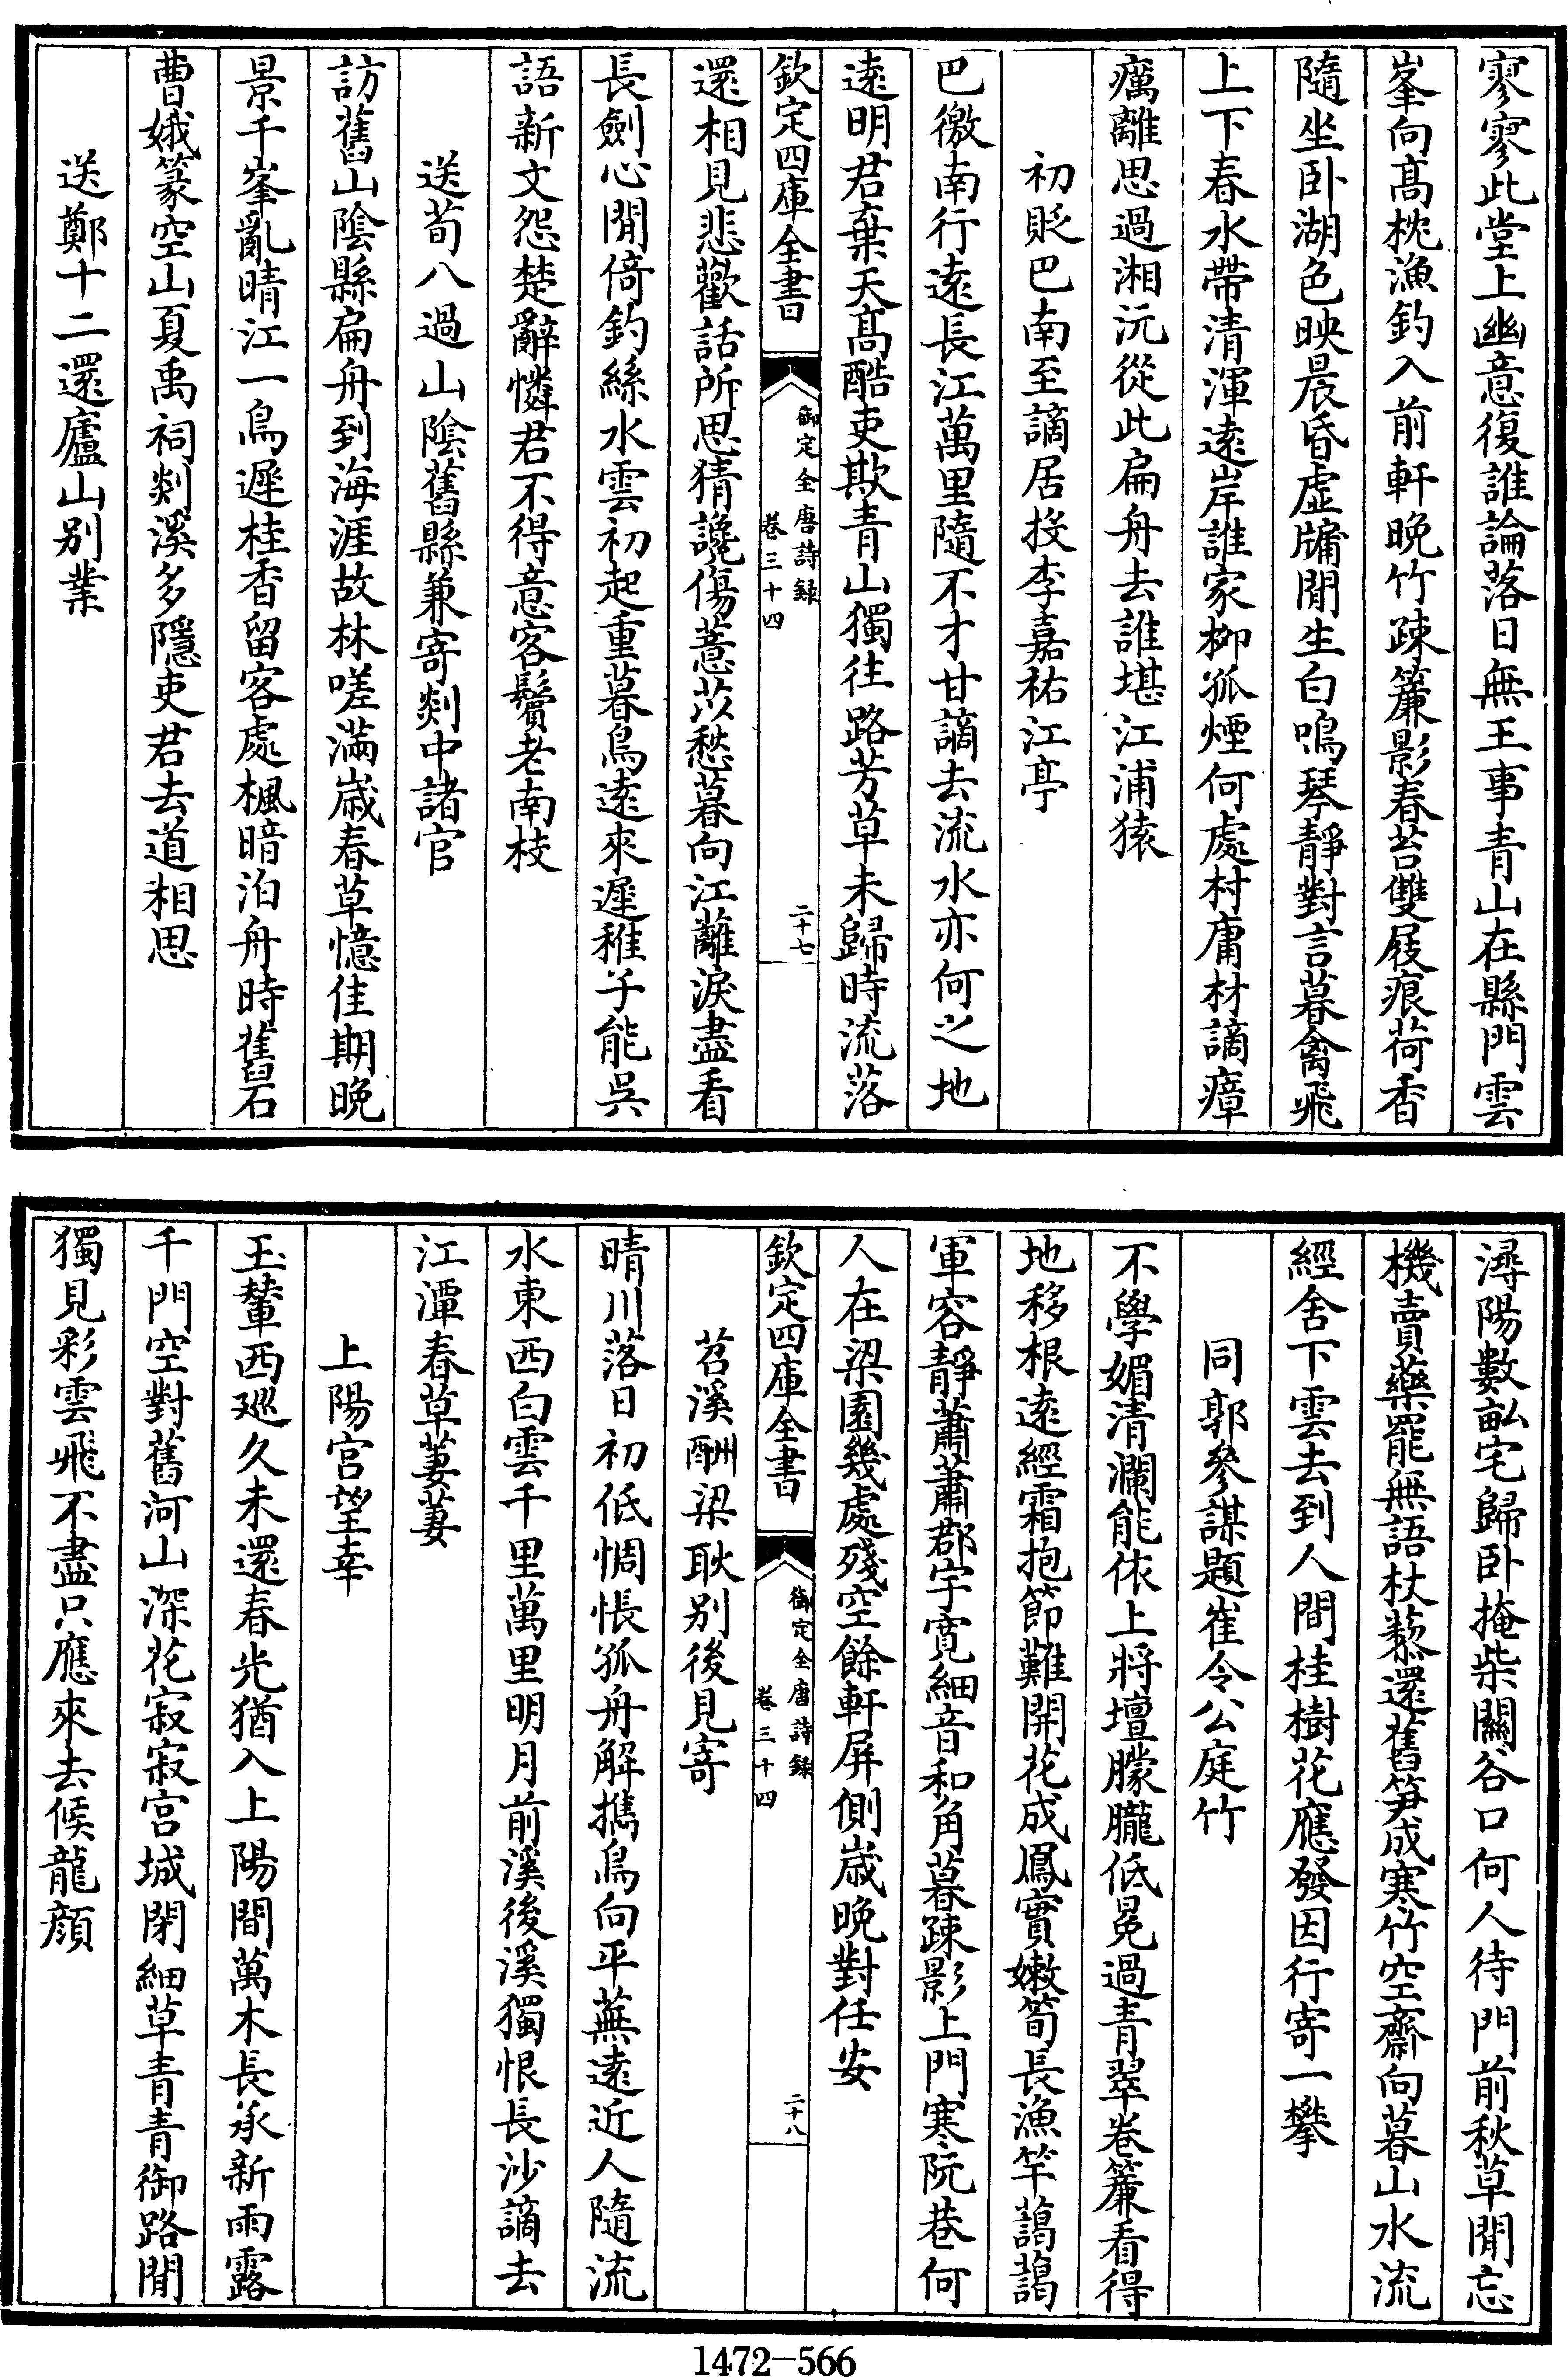 寥寥此堂上幽意復誰論落日無王事青山在縣門雲
峯向髙枕漁釣入前軒晚竹疎簾影春苔雙屐痕荷香
隨坐卧湖色映晨昏虛牗閒生白鳴琴靜對言暮禽飛
上下春水帶清渾遠岸誰家柳孤煙何處村庸材謫瘴
癘離思過湘沅從此扁舟去誰堪江浦猿
初貶巴南至謫居投李嘉祐江亭
巴徼南行遠長江萬里隨不才甘謫去流水亦何之地
遠明君棄天髙酷吏欺青山獨往路芳草未歸時流落
欽定四庫全書
御定全唐詩録
卷三十四
二十七
還相見悲歡話所思猜讒傷薏苡愁暮向江蘺淚盡看
長劍心閒倚釣絲水雲初起重暮鳥遠來遲稚子能吳
語新文怨楚辭憐君不得意客鬢老南枝
送荀八過山陰舊縣兼寄剡中諸官
訪舊山陰縣扁舟到海涯故林嗟滿歲春草憶佳期晚
景千峯亂晴江一鳥遲桂香留客處楓暗泊舟時舊石
曹娥篆空山夏禹祠剡溪多隱吏君去道相思
送鄭十二還廬山別業
潯陽數畝宅歸卧掩柴關谷口何人待門前秋草閒忘
機賣藥罷無語杖藜還舊笋成寒竹空齋向暮山水流
經舍下雲去到人間桂樹花應發因行寄一攀
同郭參謀題崔令公庭竹
不學媚清瀾能依上將壇朦朧低冕過青翠卷簾看得
地移根遠經霜抱節難開花成鳳實嫩筍長漁竿藹藹
軍容靜蕭蕭郡宇寛細音和角暮疎影上門寒阮巷何
人在梁園幾處殘空餘軒屏側歲晚對任安
欽定四庫全書
御定全唐詩録
卷三十四
二十八
苕溪酬梁耿别後見寄
晴川落日初低惆悵孤舟解攜鳥向平蕪遠近人隨流
水東西白雲千里萬里明月前溪後溪獨恨長沙謫去
江潭春草萋萋
上陽宫望幸
玉輦西廵久未還春光猶入上陽間萬木長承新雨露
千門空對舊河山深花寂寂宫城閉細草青青御路閒
獨見彩雲飛不盡只應來去候龍顔
1472-566